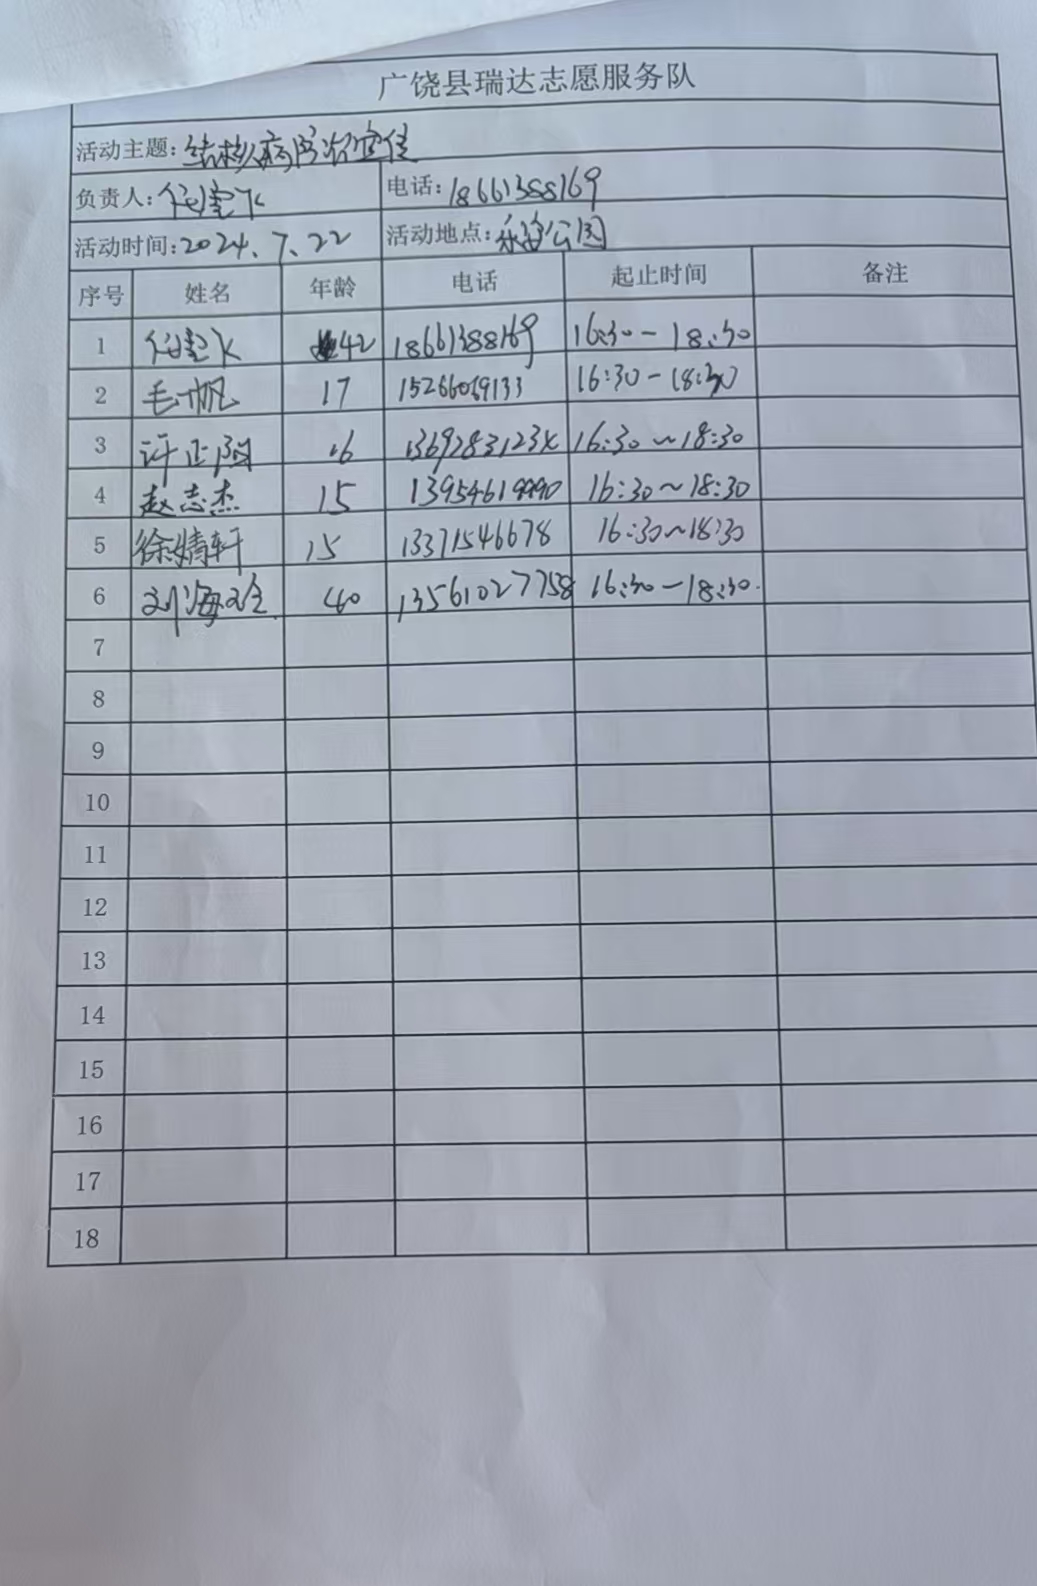 广饶县瑞达志愿服务队
活动主题: 结核病防治宣传
负责人: 电话: 18661388169
活动时间: 2024、7、22 活动地点: 乐安公园
序号 姓名 年龄 电话 起止时间 备注
1 42 18661388169 16:30-18:30
2 毛一帆 17 15266069133 16:30-18:30
3 许正阳 16 16:30~18:30
4 赵志杰 15 16:30~18:30
5 徐婧轩 15 13371546678 16:30~18:30
6 刘海玲 40 13561027758 16:30-18:30.
7
8
9
10
11
12
13
14
15
16
17
18